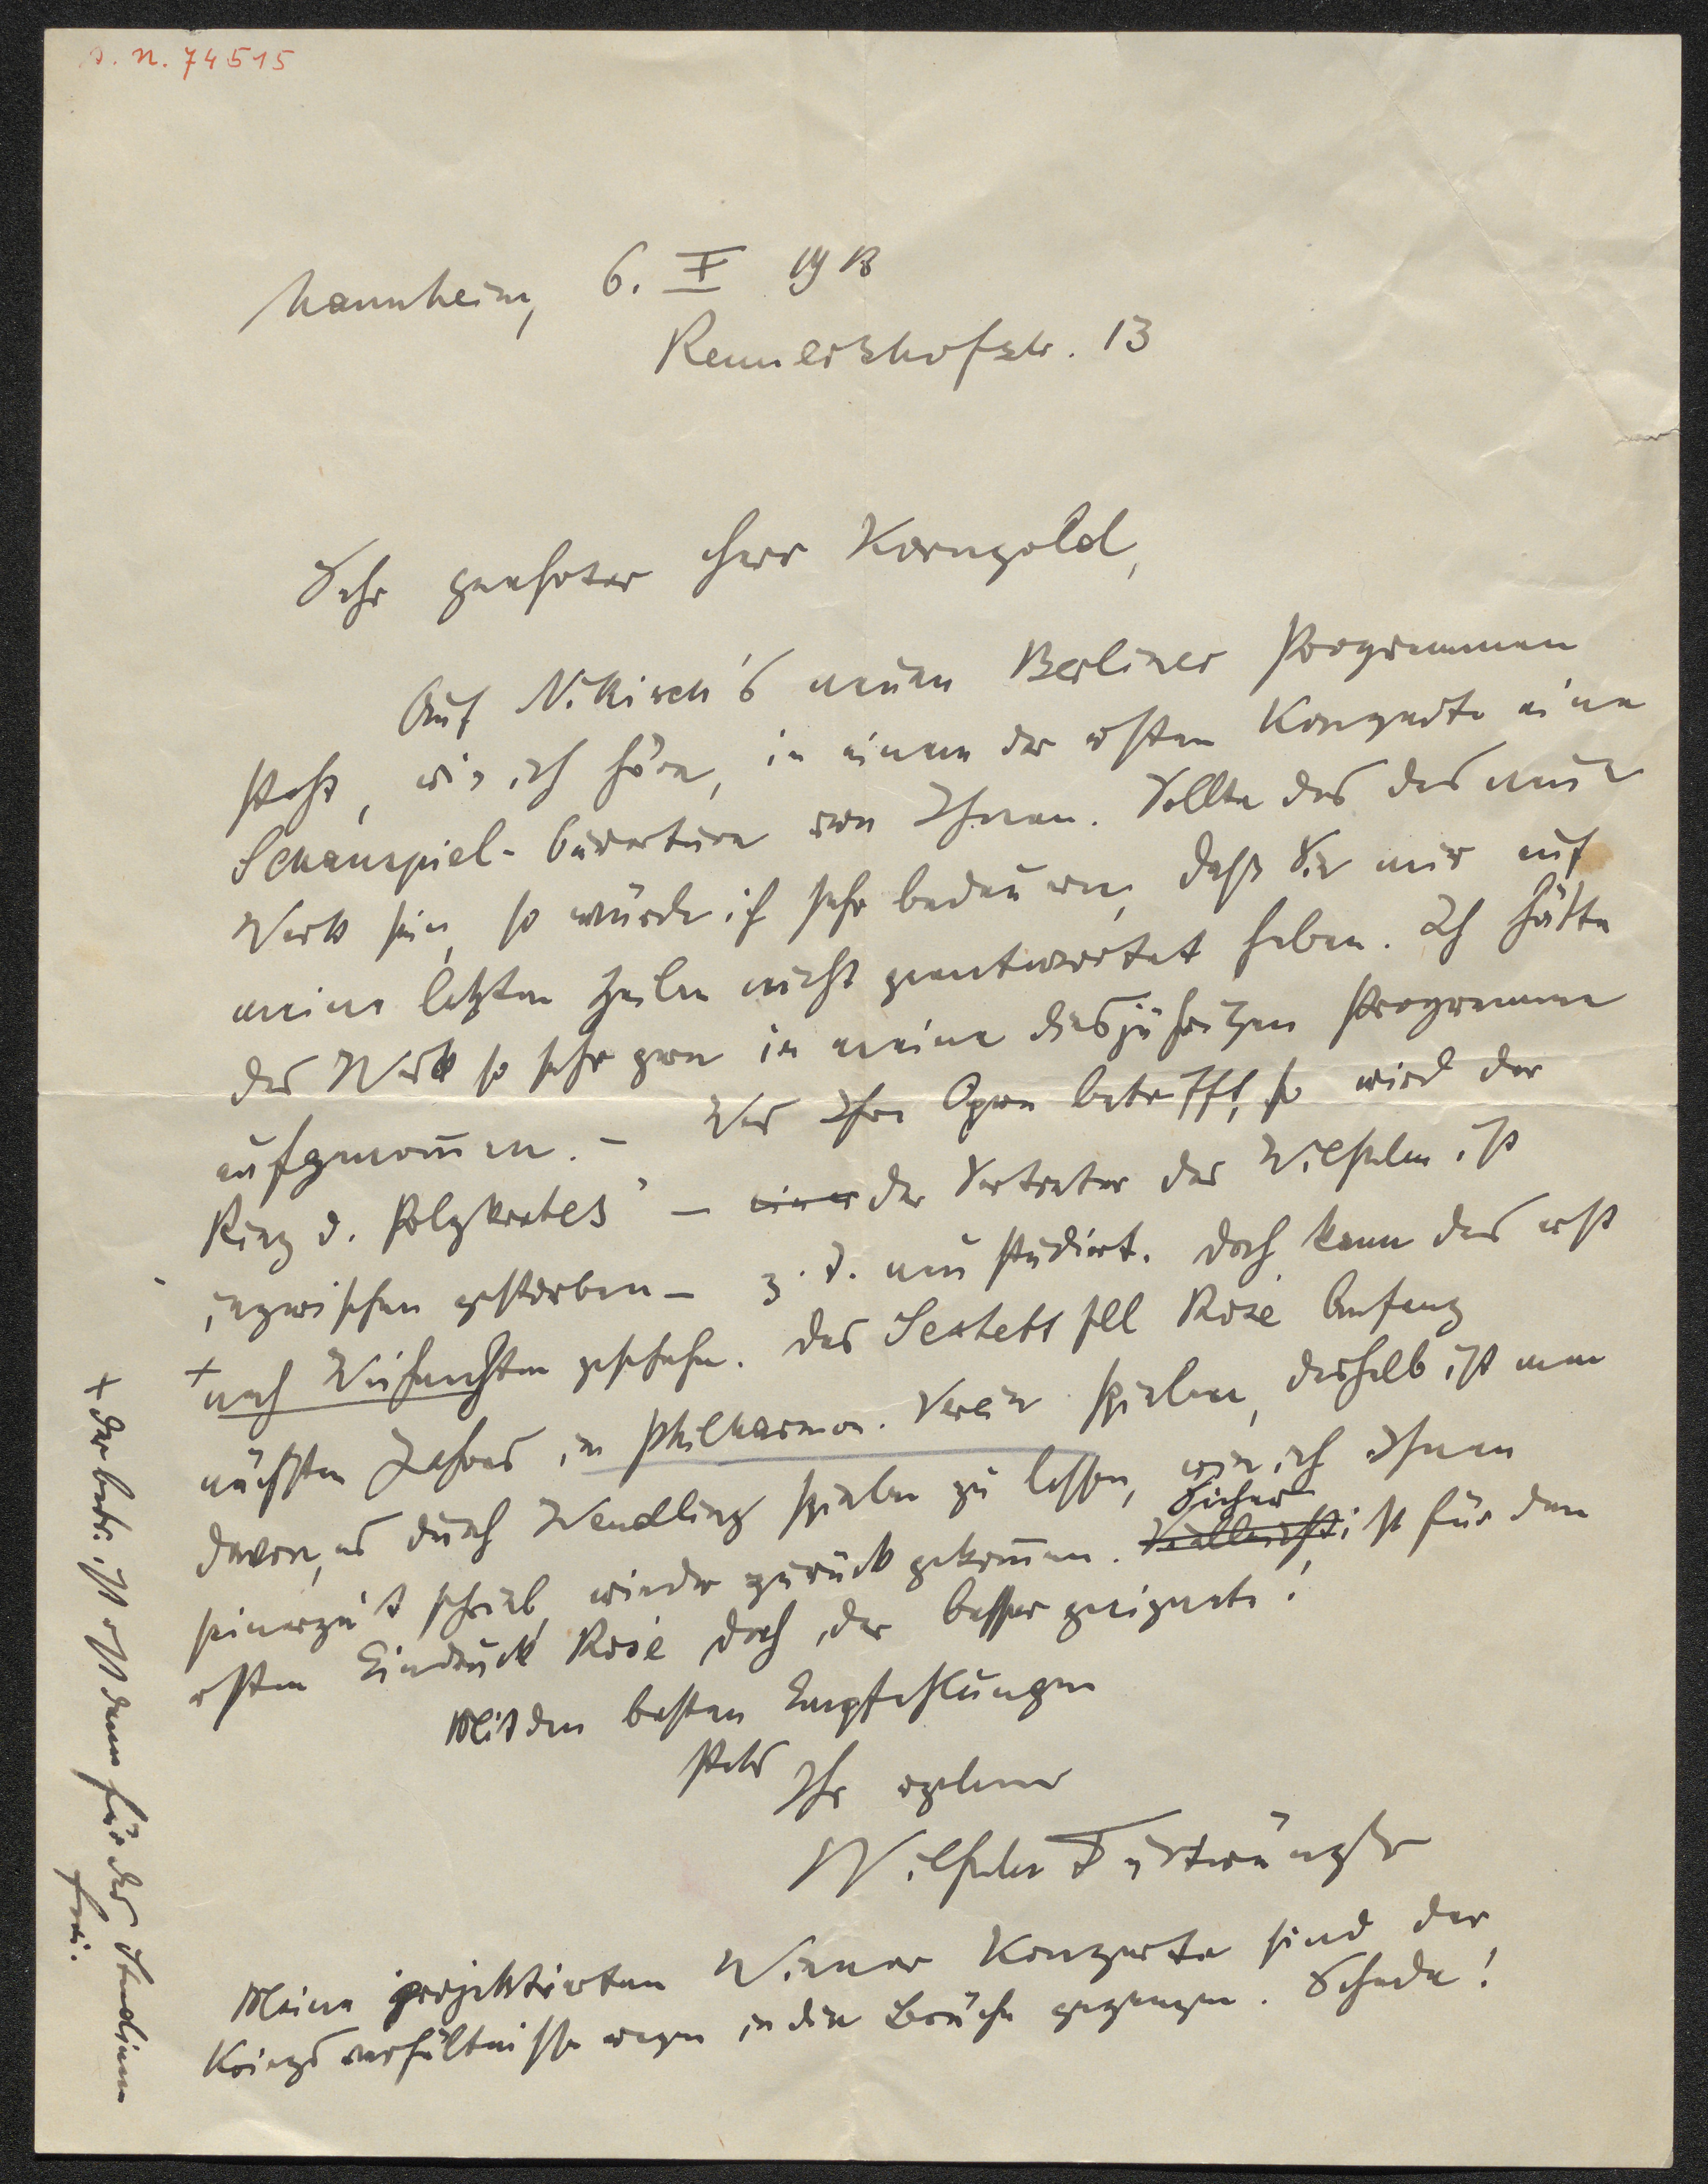 s. n. 74515
Mannheim, 6. X 1918
Rennershofstr. 13
Sehr geehrter Herr Korngold,
Auf Nikisch's neuen Berliner Programmen
steht, wie ich höre, in einem der ersten Konzerte eine
Schauspiel-Ouverture von Ihnen. Sollte das das neue
Werk sein, so würde ich sehr bedauern, daß Sie mir auf
meine letzten Zeilen nicht geantwortet haben. Ich hätte
das Werk so sehr gern in meine diesjährigen Programme
aufgenom̄en. – Was Ihre Opern betrifft, so wird der
Ring d. Polykrates" – einer der Vertreter des Wilhelm ist
inzwischen gestorben – z. T. neu studiert. Doch kann das erst
+ nach Weihnachten geschehn. Das Sextett soll Rosé Anfang
nächsten Jahres im Philharmon. Verein spielen, deshalb ist man
davon, es durch Wendling spielen zu lassen, wie ich Ihnen
seinerzeit schrieb, wieder zurück gekom̄en. Vielleicht Sicher ist für den
ersten Eindruck Rosé doch der besser geeignete!
Mit den besten Empfehlungen
stets Ihr ergebener
Wilhelm Furtwängler
Meine projektierten Wiener Konzerte sind der
Kriegsverhältnisse wegen in die Brüche gegangen. Schade!
+ der betr. ist erst dann für das Studium
frei.